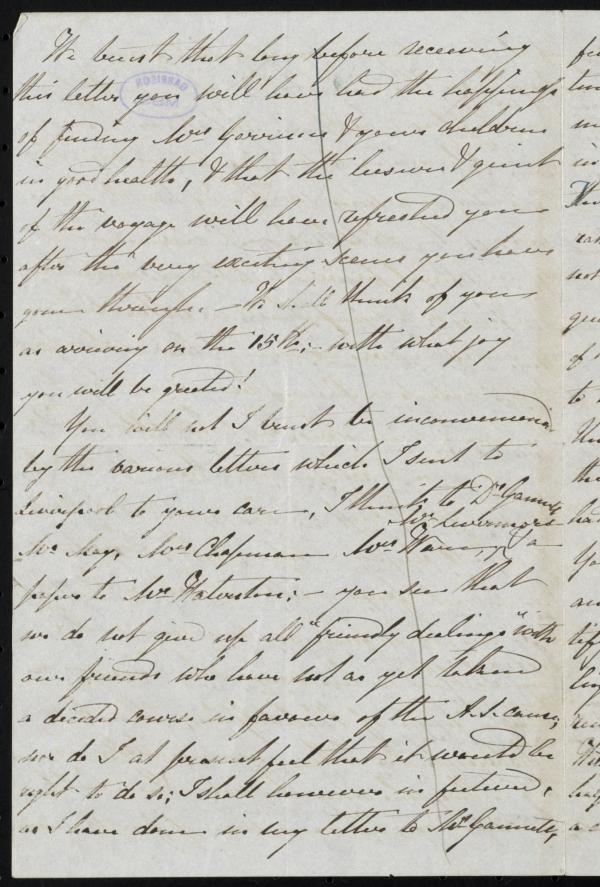 We trust that long before receiving
this letter you will have had the happiness
of finding Mrs Garrison & your children
in good health, & that the leisure & quiet
of the voyage will have refreshed you
after the very exciting scenes you have
gone through. – We shall think of you
as arriving on the 15th; – with what joy
you will be greeted!
You will not I trust be inconvenienced
by the various letters which I sent to
Liverpool to your care, I think to Dr Gannett,
Mr Livermore
Mr May, Mrs Chapman Mrs & a
paper to Mr Waterston; – you see that
we do not give up all "friendly dealings" with
our friends who have not as yet taken
a decided course in favour of the A.S. cause,
nor do I at present feel that it would be
right to do so; I shall however in future,
as I have done in my letter to Mr Gannett,